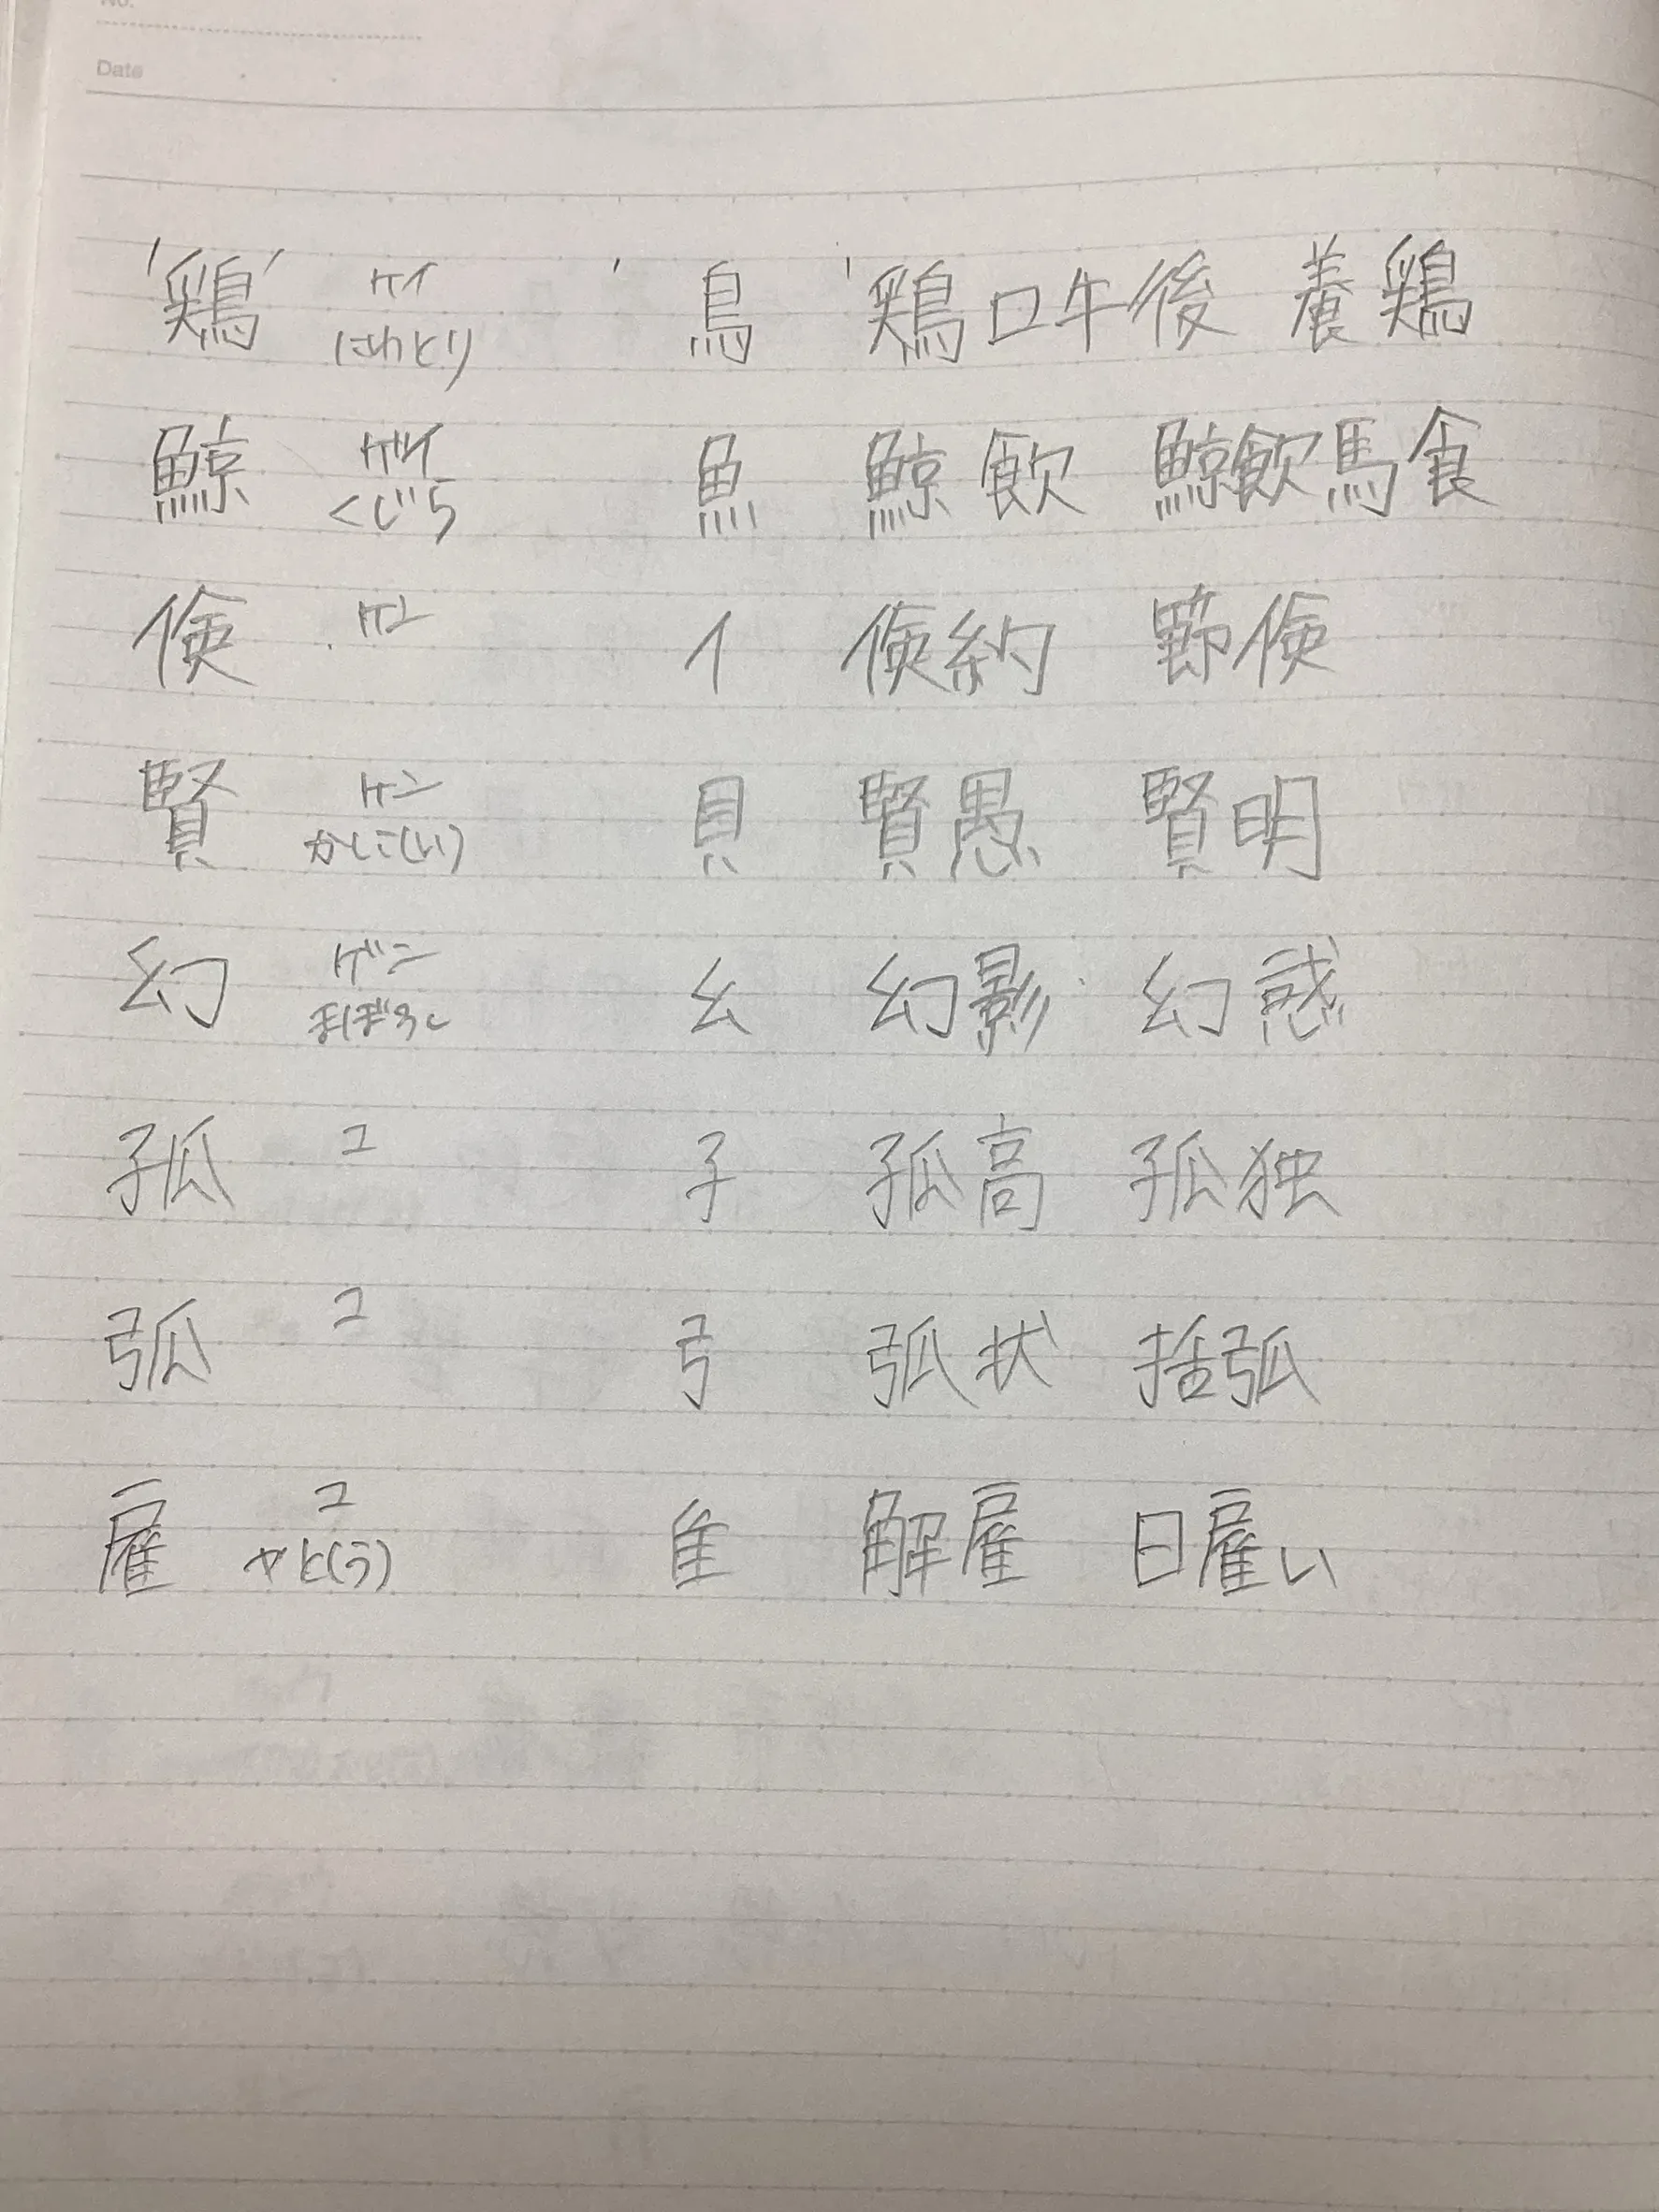 No.
Date
鶏 ケイ にわとり 鳥 鶏口牛後 養鶏
鯨 ゲイ くじら 魚 鯨飲 鯨飲馬食
倹 ケン 亻 倹約 節倹
賢 ケン かしこ(い) 貝 賢愚 賢明
幻 ゲン まぼろし 幺 幻影 幻惑
孤 コ 子 孤高 孤独
弧 コ 弓 弧状 括弧
雇 コ やと(う) 隹 解雇 日雇い